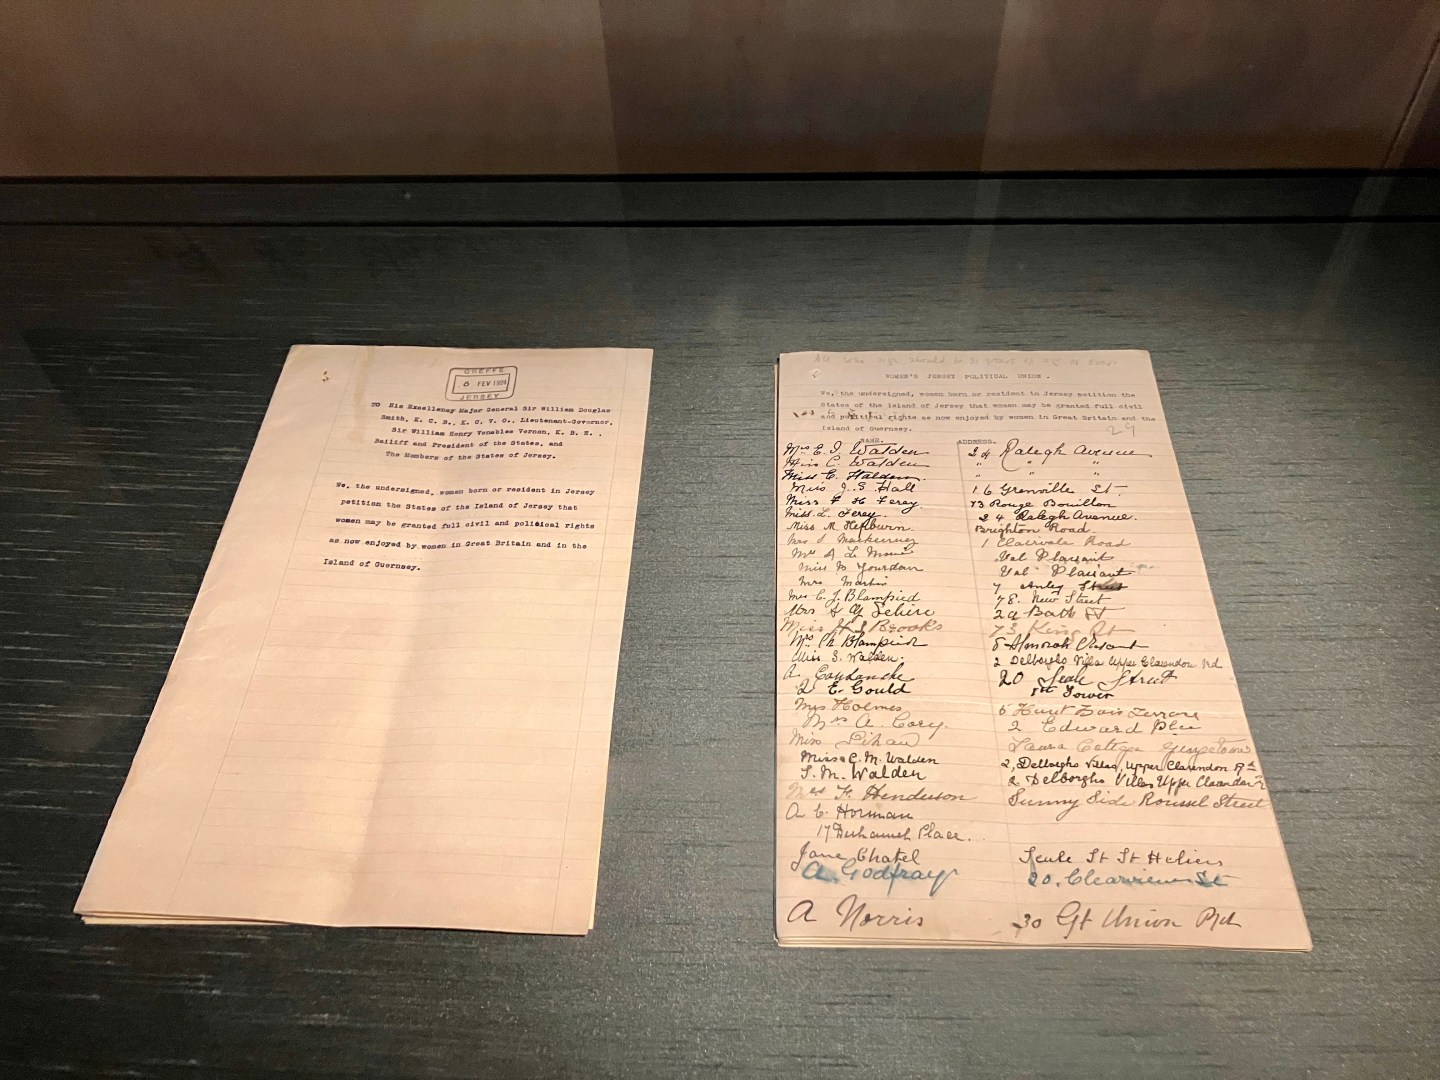 GREFFE
6 FEV 1924
JERSEY
TO His Excellenay Major General Sir William Douglas
Smith, K. C. B., K. C. V. O., Lieutenant-Governor,
Sir William Henry Venables Vernon, K. B. E. ,
Bailiff and President of the States, and
The Members of the States of Jersey.
We, the undersigned, women born or resident in Jersey
petition the States of the Island of Jersey that
women may be granted full civil and political rights
as now enjoyed by women in Great Britain and in the
Island of Guernsey.
All who sign should be 21 years of age or over.
WOMEN'S JERSEY POLITICAL UNION .
We, the undersigned, women born or resident in Jersey petition the
States of the Island of Jersey that women may be granted full civil
and political rights as now enjoyed by women in Great Britain and the
Island of Guernsey.
29
NAME. ADDRESS.
Mrs E. J. Walden 24 Ralegh Avenue
Miss C. Walden " " "
Miss E. " " "
Miss J. S. Hall 16 Grenville St.
Miss F H Ferey 73 Rouge Bouillon
Miss. L. Ferey. 24 Ralegh Avenue.
Miss M. Hepburn. Brighton Road
Mrs 1 Clairvale Road
Val Plaisant
Miss Jourdan Val Plaisant
Mrs Martin 7 Anley Street
Mrs C. J. Blampied 78. New Street
Mrs Bath St
Miss Brooks 73 King St
Mrs Blampied
Miss S. Walden. 2 Delborgho Villa Upper Clarendon Rd
A 20 Seale Street
E. Gould 1st Tower
Mrs Holmes 5
Mrs A. Cory. 2 Edward Plce
Miss Lihou Laura Cottage Georgetown
Miss C. M. Walden 2, Delborgho Villas, Upper Clarendon Rd
S. M. Walden 2 Delborgho Villas Upper Clarendon
F. Henderson Sunny Side Roussel Street
A E Horman
17 Place.
Jane Chatel Seale St St Heliers
A. Godfray 20. Clearview St
A Norris 30 Gt Union Rd